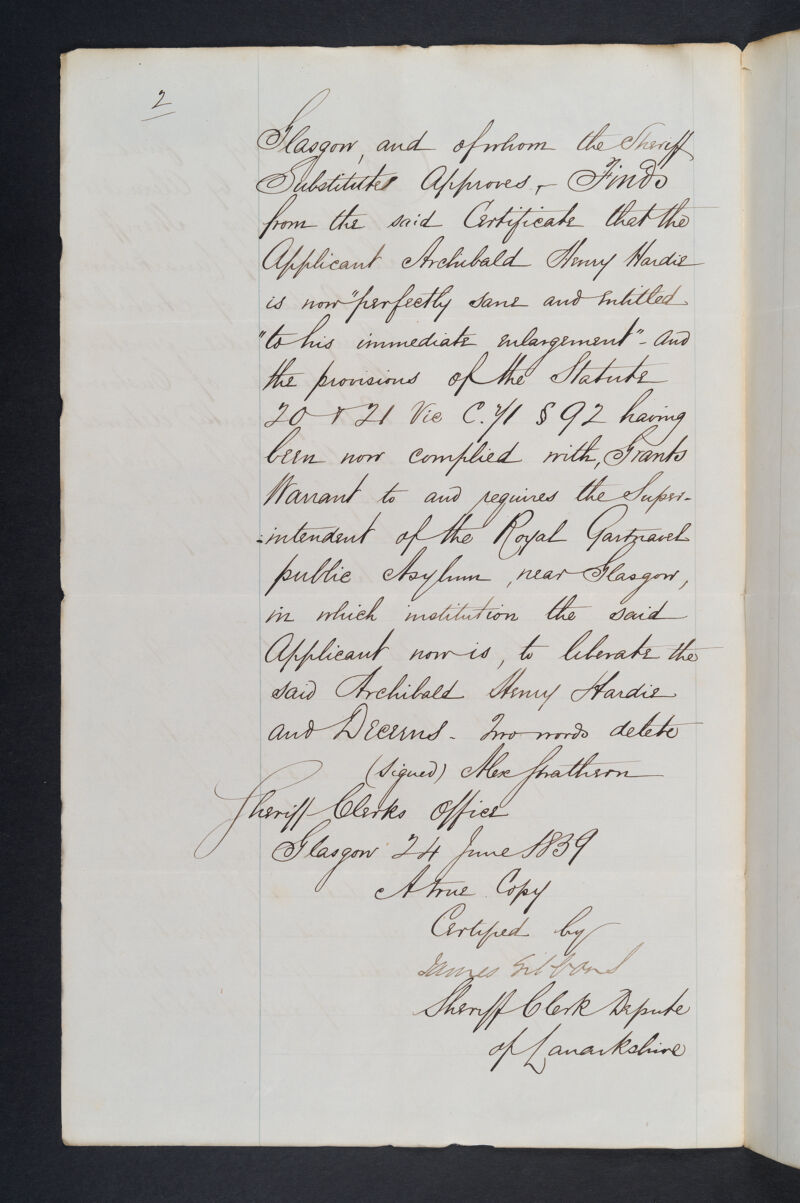 2
Glasgow, and of whom the Sheriff
Substitute Approves, - Finds
from the said Certificate that the
Applicant Archibald Henry Hardie
is now "perfectly sane and entitled
"to his immediate enlargement" - and
the provisions of the Statute
20 & 21 Vic C. 71 § 92 having
been now complied with, Grants
Warrant to and requires the Super-
-intendent of the Royal Gartnavel
public Asylum, near Glasgow,
in which institution the said
Applicant now is, to liberate the
said Archibald Henry Hardie
and Decerns - Two words delete
(signed) Alex Strathern
Sheriff Clerks Office
Glasgow 24 June 1839
A true Copy
Certified by
James Gibbons
Sheriff Clerk Depute
of Lanarkshire